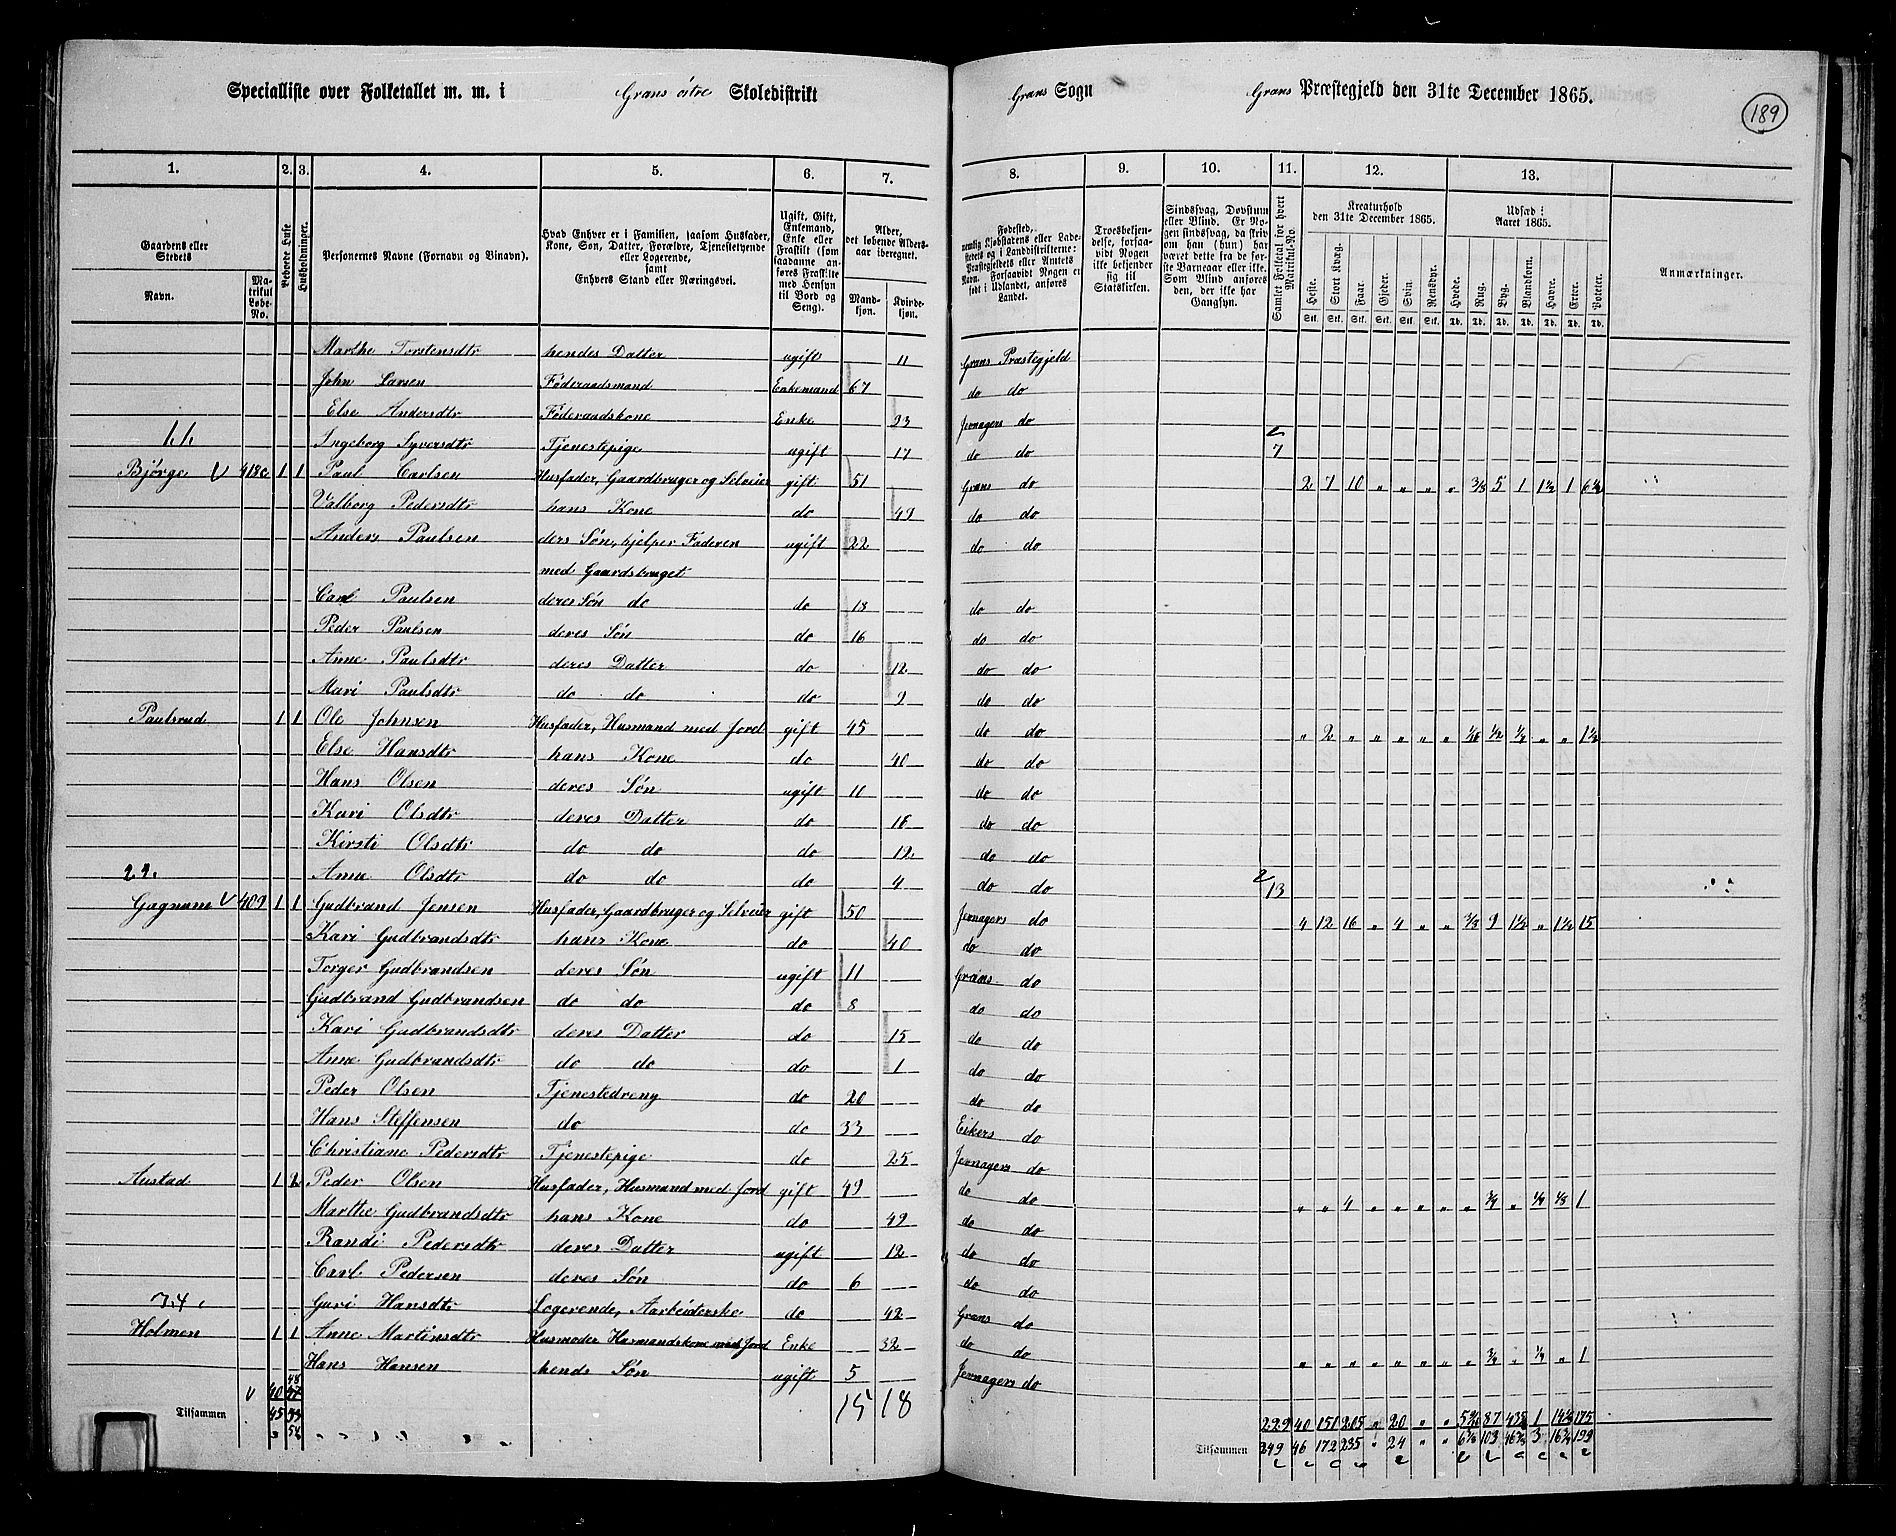 Specialliste over Folketallet m. m. i Grans östre Skoledistrikt Grans Sogn Grans Præstegjeld den 31te December 1865.
189
1. 2. 3. 4. 5. 6. 7. 8. 9. 10. 11. 12. 13.
Gaardens eller Stedets
Navn.
Matrikul Løbe-No.
Beboede Huse
Husholdninger.
Personernes Navne (Fornavn og Tilnavn).
Hvad Enhver er i Familien, saasom Husfader, Kone, Søn, Datter, Forældre, Tjenestetyende eller Logerende, samt Enhvers Stand eller Næringsvei.
Ugift, Gift, Enkemand, Enke eller Fraskilt (som saadanne anføres Fraskilte med Hensyn til Bord og Seng).
Alder, det løbende Alders-aar iberegnet.
Mandkjøn.
Kvindekjøn.
Fødested,
Troesbekjendelse, forsaavidt Nogen ikke bekjender sig til Statskirken.
Sindssvag, Døvstum eller Blind. Er Nogen sindssvag, da skriv om han (hun) har været dette fra de første Barneaar eller ikke. Som Blind anføres den, der ikke har Gangsyn.
Samlet Folketal for hvert Matrikul-No.
Kreaturhold den 31te December 1865.
Heste. Stort Kvæg. Faar. Gjeder. Svin. Rensdyr.
Udsæd i Aaret 1865.
Hvede. Rug. Byg. Blandkorn. Havre. Erter. Poteter.
Anmærkninger.
Stk. Stk. Stk. Stk. Stk. Stk. Td. Td. Td. Td. Td. Td. Td.
Marthe Torstensdtr hendes Datter ugift 11 Grans Præstegjeld
John Larsen Föderaadsmand Enkemand 67 do do
Else Andersdtr Föderaadskone Enke 23 Jevnagers do
Ingeborg Syversdtr Tjenestepige ugift 17 do do 7
Bjørge 418c 1 1 Paul Carlsen Husfader, Gaardbruger og Selveier gift 51 Grans do 2 7 10 " " " " 3/8 5 1 1½ 1 6½
Valborg Pedersdtr hans Kone do 49 do do
Anders Paulsen ders Søn, hjelper Faderen ugift 22 do do
med Gaardsbruget
Carl Paulsen deres Søn do do 18 do do
Peder Paulsen deres Søn do 16 do do
Anne Paulsdtr deres Datter do 12 do do
Mari Paulsdtr do do do 9 do do
Paulsrud 1 1 Ole Johnsen Husfader, Husmand med Jord gift 45 do do " 2 " " " " " 1/16 ½ " " 1½
Else Hansdtr hans Kone do 40 do do
Hans Olsen deres Søn ugift 11 do do
Kari Olsdtr deres Datter do 18 do do
Kirsti Olsdtr do do do 12 do do
22.
Anne Olsdtr do do do 4 do do 13
Gagnum 409 1 1 Gudbrand Jensen Husfader, Gaardbruger og Selveier gift 50 Jevnagers do 4 12 16 " 4 " " 3/8 9 1½ " 1½ 15
Kari Gudbrandsdtr hans Kone do 40 do do
Torger Gudbrandsen deres Søn ugift 11 Grans do
Gudbrand Gudbrandsen do do do 8 do do
Kari Gudbrandsdtr deres Datter do 15 do do
Anne Gudbrandsdtr do do do 1 do do
Peder Olsen Tjenestedreng do 20 do do
Hans Steffensen do do 33 Eikers do
Christiane Pedersdtr Tjenestepige do 25 Jevnagers do
Austad 1 2 Peder Olsen Husfader, Husmand med Jord gift 49 do do " " 4 " " " " " ¾ " ¼ ⅛ 1
Marthe Gudbrandsdtr hans Kone do 49 do do
Randi Pedersdtr deres Datter ugift 12 do do
Carl Pedersen deres Søn do 6 do do
Guri Hansdtr Logerende, Arbeiderske do 42 Grans do
Holmen 1 1 Anne Martinsdtr Husmoder Husmandskone med Jord Enke 32 do do " " " " " " " " ¾ " ¼ " 1
Hans Hansen hends Søn ugift 5 Jevnagers do
15 18
Tilsammen 45 229 40 151 205 " 20 " " 87 1 175
Tilsammen 249 46 172 235 " 24 " " 103 3 199